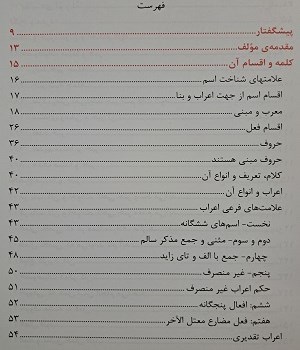 فهرست
پیشگفتار ۹
مقدمه‌ی مؤلف ۱۳
کلمه و اقسام آن ۱۵
علامتهای شناخت اسم ۱۶
اقسام اسم از جهت اعراب و بنا ۱۷
معرب و مبنی ۱۸
اقسام فعل ۲۶
حروف ۳۶
حروف مبنی هستند ۴۰
کلام، تعریف و انواع آن ۴۰
اعراب و انواع آن ۴۲
علامت‌های فرعی اعراب ۴۳
نخست- اسم‌های ششگانه ۴۳
دوم و سوم- مثنی و جمع مذکر سالم ۴۵
چهارم- جمع با الف و تای زاید ۴۸
پنجم- غیر منصرف ۵۰
حکم اعراب غیر منصرف ۵۱
ششم: افعال پنجگانه ۵۲
هفتم: فعل مضارع معتل الآخر ۵۳
اعراب تقدیری ۵۴